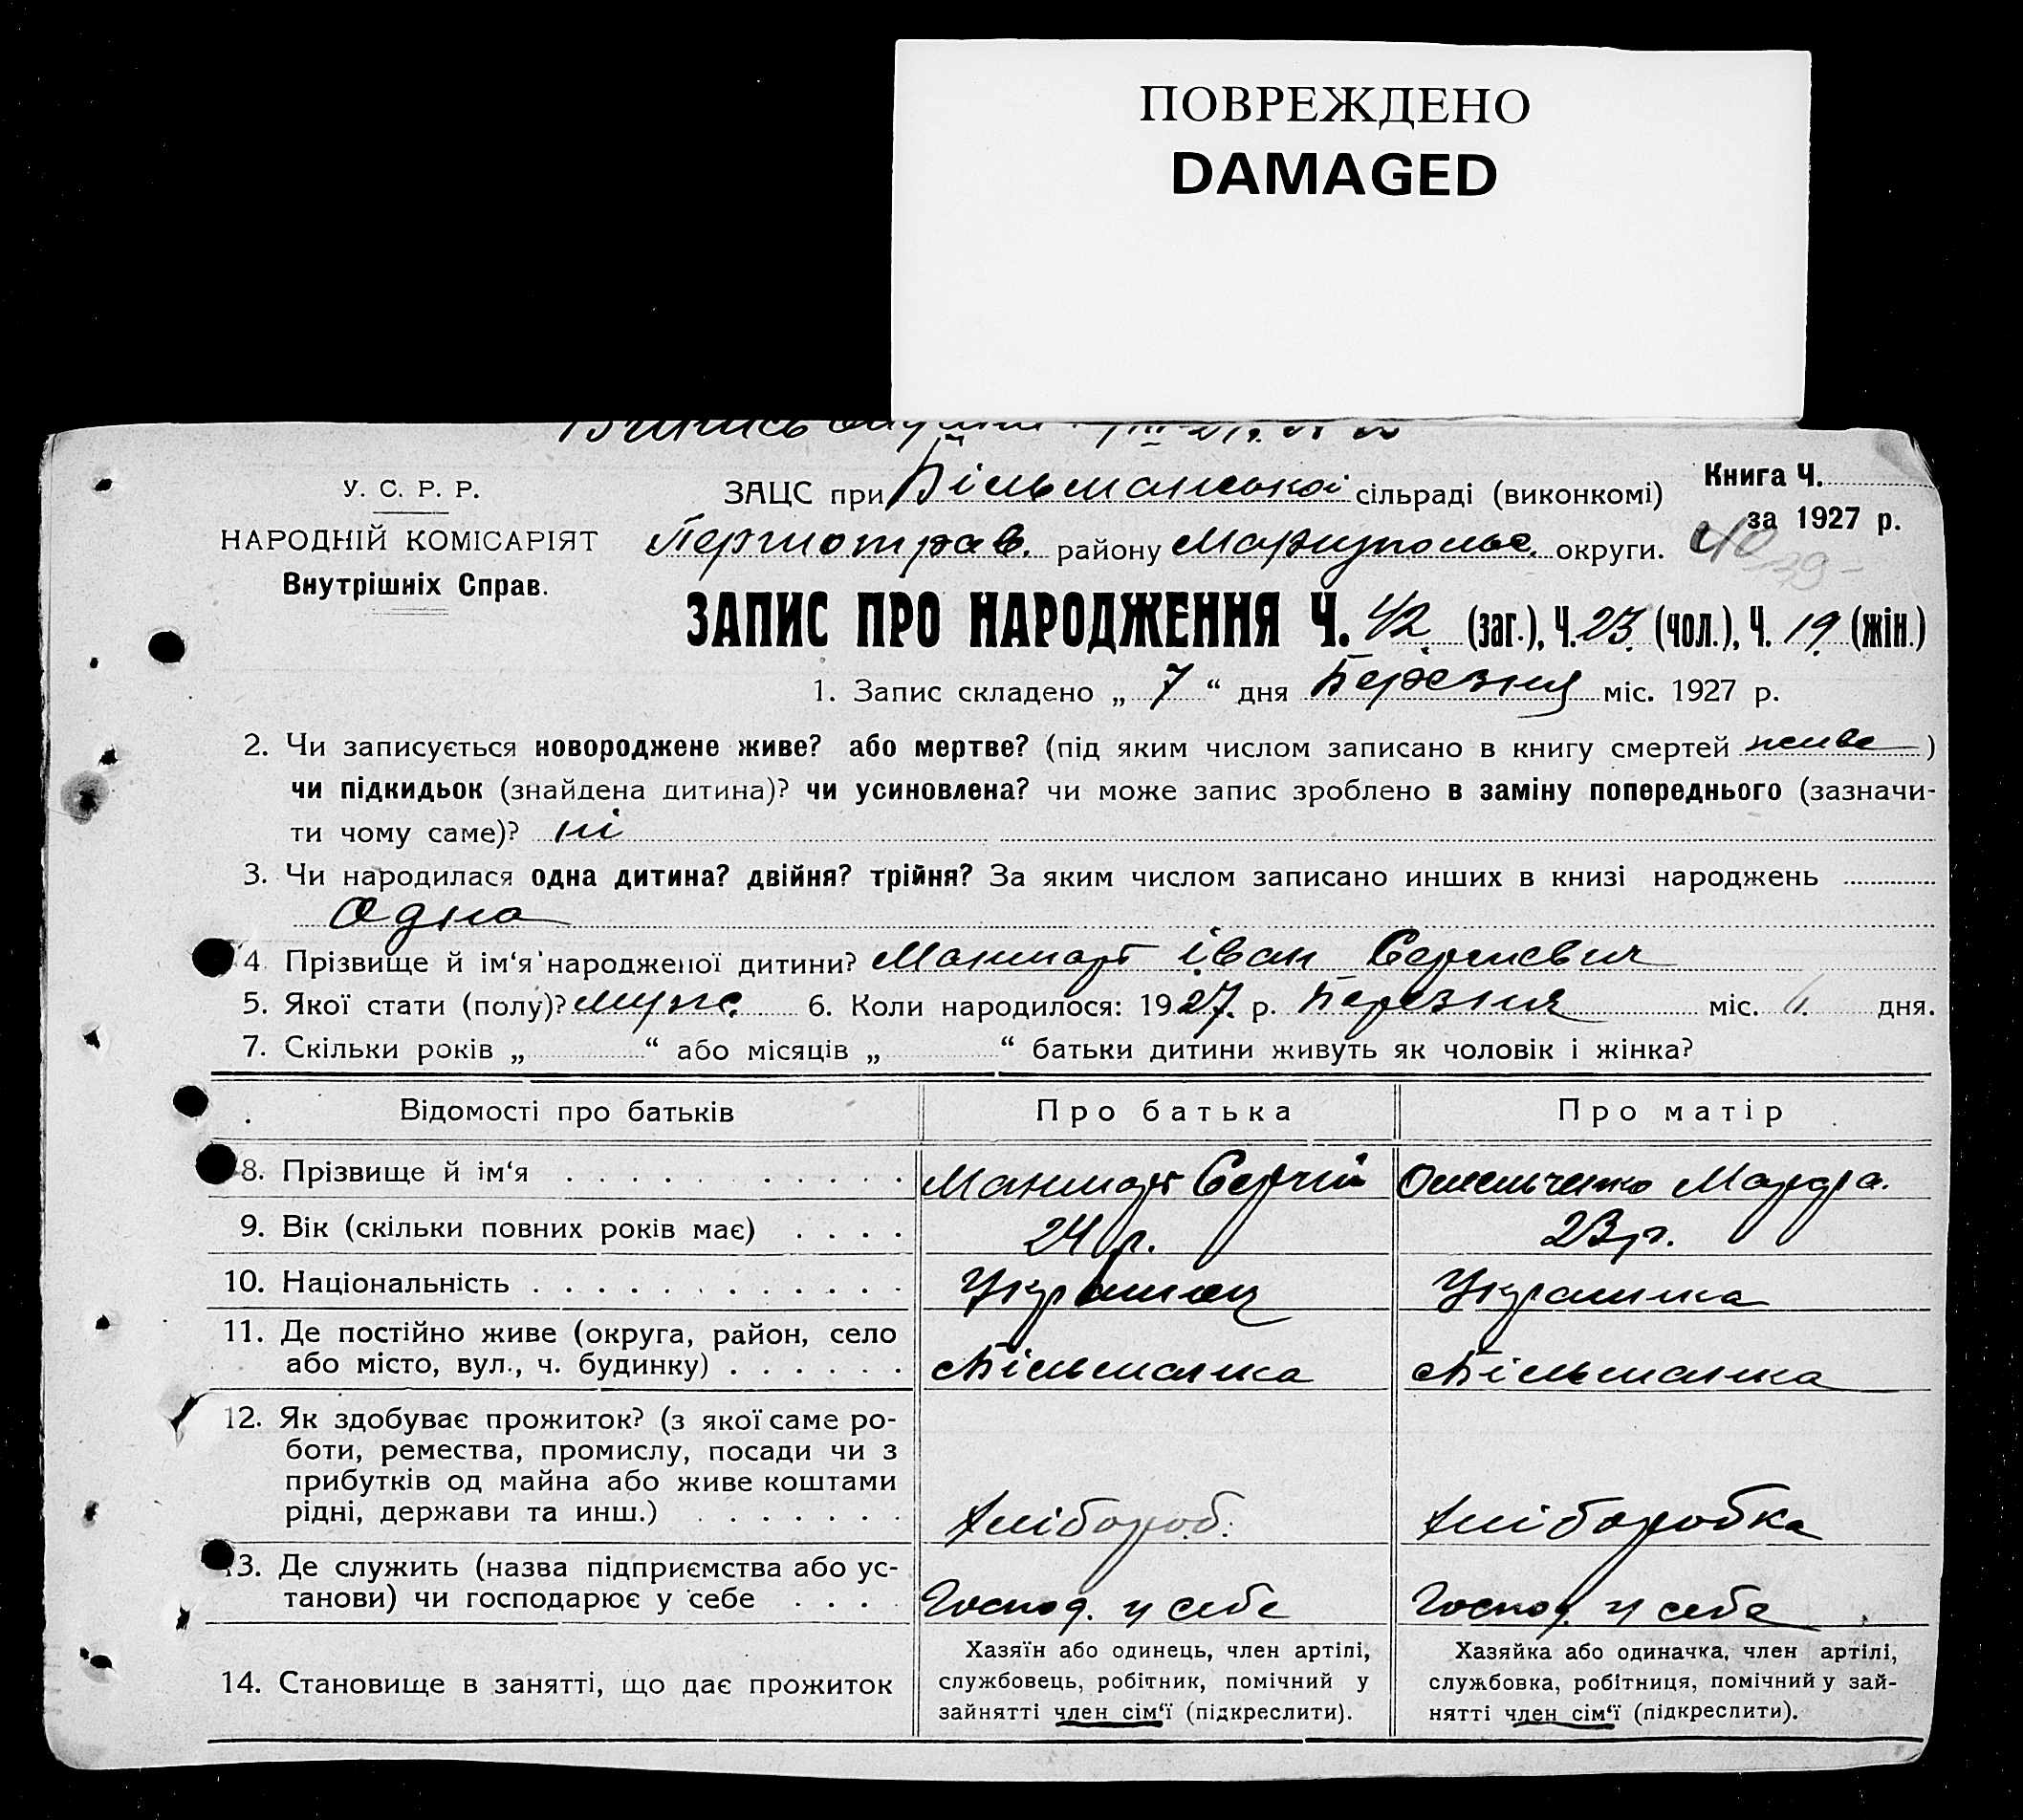 ПОВРЕЖДЕНО
DAMAGED
У. С. Р. Р.
НАРОДНІЙ КОМІСАРІЯТ
Внутрішніх Справ.
ЗАЦС при Більманської сільраді (виконкомі)
Книга Ч.
за 1927 р.
Першотрав. району Маріупольс. округи.
40
39
ЗАПИС ПРО НАРОДЖЕННЯ Ч. 42 (заг.), Ч. 23 (чол.), Ч. 19 (жін.)
1. Запис складено „ 7 “ дня Березня міс. 1927 р.
2. Чи записується новороджене живе? або мертве? (під яким числом записано в книгу смертей живе )
чи підкидьок (знайдена дитина)? чи усиновлена? чи може запис зроблено в заміну попереднього (зазначи-
ти чому саме)? ні
3. Чи народилася одна дитина? двійня? трійня? За яким числом записано инших в книзі народжень
Одна
4. Прізвище й ім‘я народженої дитини? Маншарт Іван Сергиевич
5. Якої стати (полу)? муж. 6. Коли народилося: 1927. р. Березня міс. 6. дня.
7. Скільки років „ “ або місяців „ “ батьки дитини живуть як чоловік і жінка?
Відомості про батьків Про батька Про матір
8. Прізвище й ім‘я Маншарт Сергій Омельченко Марфа.
9. Вік (скільки повних років має) 24 р. 23 р.
10. Національність Украинец Украинка
11. Де постійно живе (округа, район, село
або місто, вул., ч. будинку) Більманка Більманка
12. Як здобуває прожиток? (з якої саме ро-
боти, ремества, промислу, посади чи з
прибутків од майна або живе коштами
рідні, держави та инш.) Хлібороб. Хліборобка
13. Де служить (назва підприємства або ус-
танови) чи господарює у себе Господ. у себе Господ. у себе
14. Становище в занятті, що дає прожиток
Хазяїн або одинець, член артілі,
службовець, робітник, помічний у
зайнятті член сім‘ї (підкреслити).
Хазяйка або одиначка, член артілі,
службовка, робітниця, помічний у зай-
нятті член сім‘ї (підкреслити).